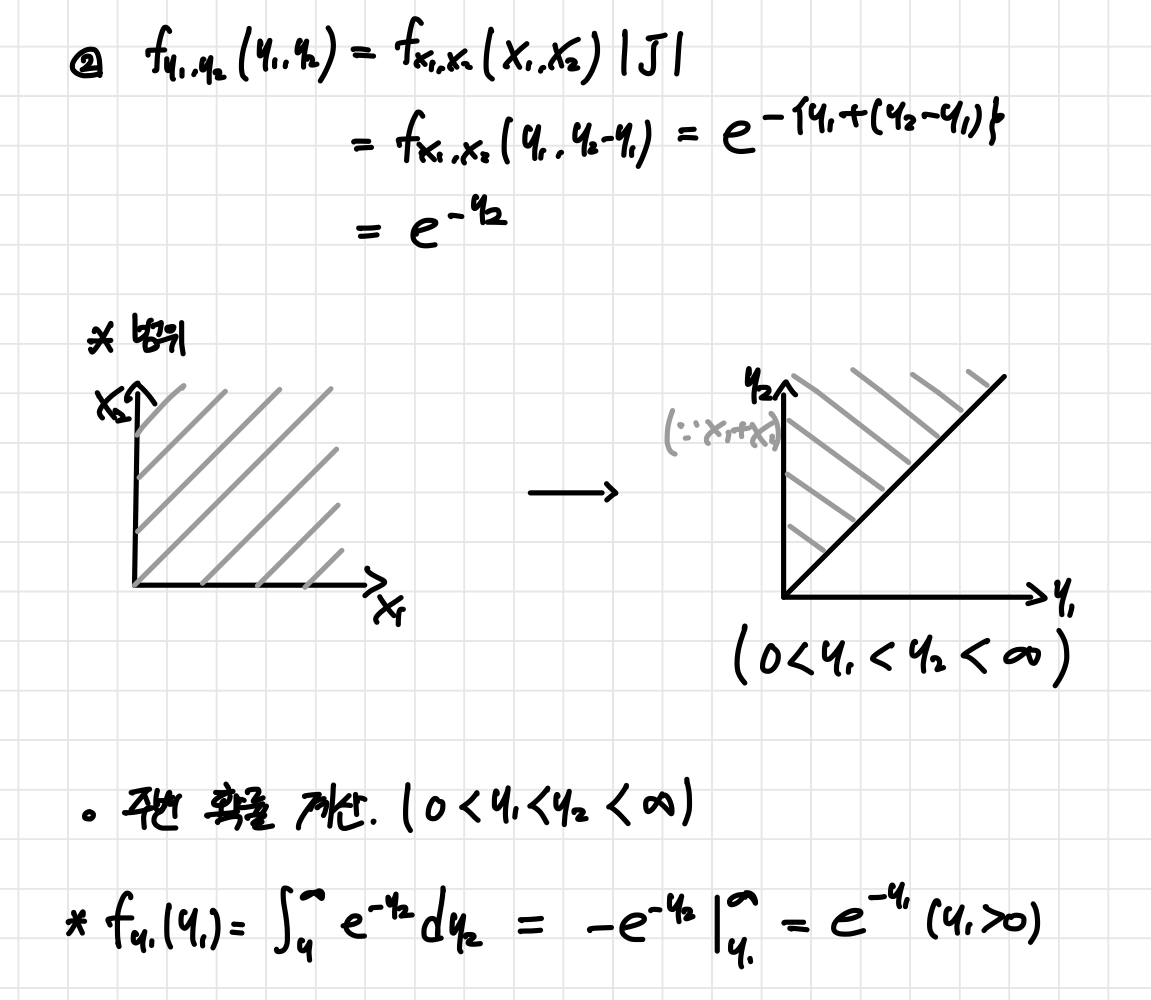 ② f_{y₁,y₂}(y₁,y₂) = f_{x₁,x₂}(x₁,x₂)|J|
= f_{x₁,x₂}(y₁,y₂-y₁) = e^{-{y₁+(y₂-y₁)}}
= e^{-y₂}
※ 범위
x₂
x₁
→
y₂
(∵x₁+x₂)
y₁
(0<y₁<y₂<∞)
∘ 주변 확률 계산. (0<y₁<y₂<∞)
* f_{y₁}(y₁) = ∫_{y}^{∞} e^{-y₂}dy₂ = -e^{-y₂}|_{y₁}^{∞} = e^{-y₁} (y₁>0)